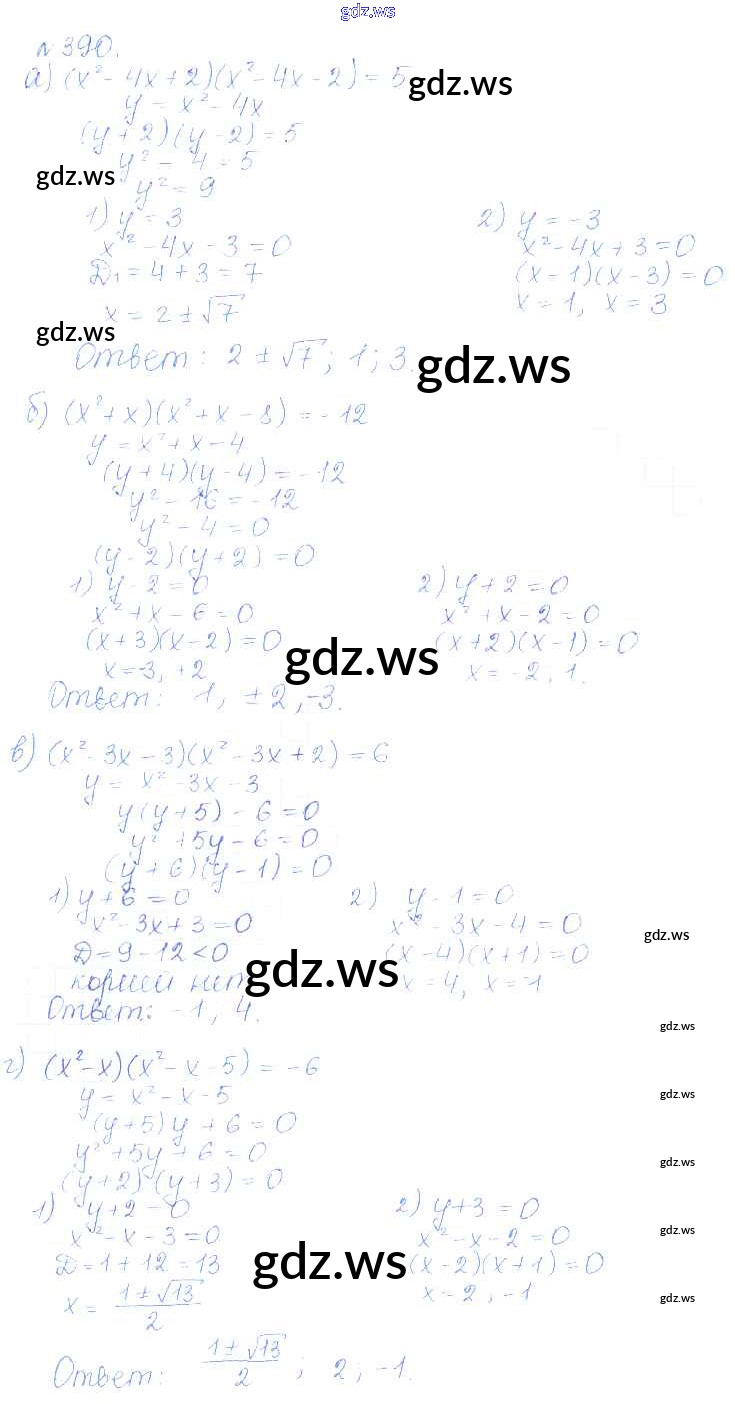 gdz.ws
№ 390.
а) (x² - 4x + 2)(x² - 4x - 2) = 5
gdz.ws
y = x² - 4x
(y + 2)(y - 2) = 5
y² - 4 = 5
gdz.ws
y² = 9
1) y = 3
x² - 4x - 3 = 0
Д₁ = 4 + 3 = 7
x = 2 ± √7
2) y = -3
x² - 4x + 3 = 0
(x - 1)(x - 3) = 0
x = 1, x = 3
gdz.ws
Ответ: 2 ± √7; 1; 3.
gdz.ws
б) (x² + x)(x² + x - 8) = -12
y = x² + x - 4
(y + 4)(y - 4) = -12
y² - 16 = -12
y² - 4 = 0
(y - 2)(y + 2) = 0
1) y - 2 = 0
x² + x - 6 = 0
(x + 3)(x - 2) = 0
x = -3, +2
2) y + 2 = 0
x² + x - 2 = 0
(x + 2)(x - 1) = 0
x = -2, 1.
gdz.ws
Ответ: 1, ±2, -3.
в) (x² - 3x - 3)(x² - 3x + 2) = 6
y = x² - 3x - 3
y(y + 5) - 6 = 0
y² + 5y - 6 = 0
(y + 6)(y - 1) = 0
1) y + 6 = 0
x² - 3x + 3 = 0
Д = 9 - 12 < 0
корней нет
2) y - 1 = 0
x² - 3x - 4 = 0
(x - 4)(x + 1) = 0
x = 4, x = -1
gdz.ws
gdz.ws
Ответ: -1, 4.
gdz.ws
г) (x² - x)(x² - x - 5) = -6
y = x² - x - 5
gdz.ws
(y + 5)y + 6 = 0
y² + 5y + 6 = 0
gdz.ws
(y + 2)(y + 3) = 0
1) y + 2 = 0
x² - x - 3 = 0
Д = 1 + 12 = 13
x = (1 ± √13)/2
2) y + 3 = 0
x² - x - 2 = 0
(x - 2)(x + 1) = 0
x = 2, -1
gdz.ws
gdz.ws
gdz.ws
Ответ: (1 ± √13)/2; 2; -1.